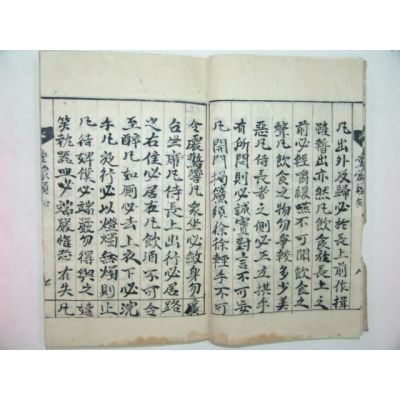 童蒙須知
凡出外及歸必於長上前作揖
雖暫出亦然凡飲食於長上之
前必輕嚼緩嚥不可聞飲食之
聲凡飲食之物勿爭較多少美
惡凡侍長者之側必正立拱手
有所問則必誠實對言不可妄
凡開門揭簾須徐徐輕手不可
令震驚響凡衆坐必斂身勿廣
占坐席凡侍長上出行必居路
之右住必居左凡飲酒不可令
至醉凡如廁必去上衣下必浣
手凡夜行必以燈燭無燭則止
凡待婢僕必端嚴勿得與之嬉
笑執器皿必端嚴惟恐有失凡
童蒙須知